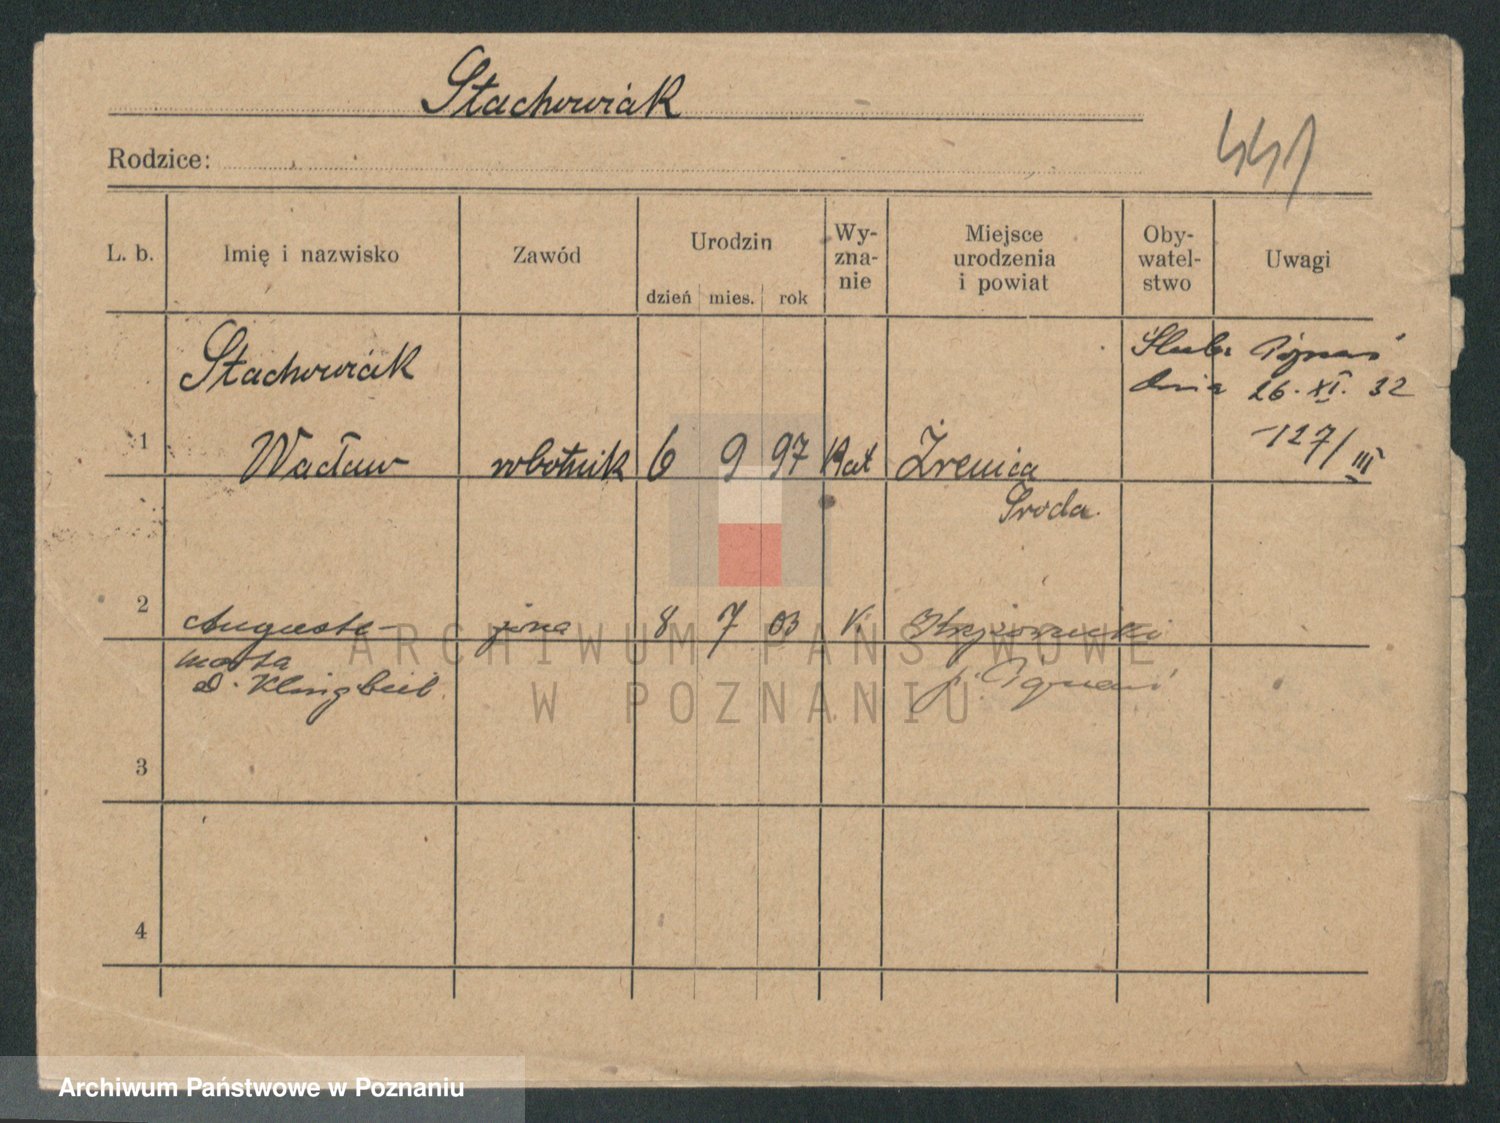 Stachowiak
Rodzice:
441
L. b. Imię i nazwisko Zawód Urodzin Wy-znanie Miejsce urodzenia i powiat Oby-watel-stwo Uwagi
dzień mies. rok
Stachowiak Ślub: Poznań
dnia 26. XI. 32
127/III
1 Wacław robotnik 6 9 97 Kat Żrenica
Środa.
2 Auguste- żona 8 7 03 Krzyżowniki
Marta p. Poznań
D. Klingbeil
3
4
ARCHIWUM PAŃSTWOWE
W POZNANIU
Archiwum Państwowe w Poznaniu